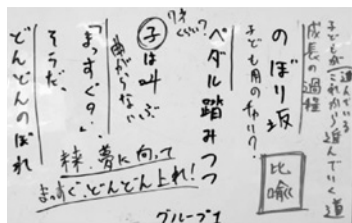 子どもが進んでいる
これから進んでいく道
成長の過程
のぼり坂
子ども用のチャリ?
比喩
ペダル踏みつつ
7才くらい?
子は叫ぶ
曲がらない
「まっすぐ?」、
そうだ、
どんどんのぼれ
未来、夢に向って
まっすぐ、どんどん上れ!
グループ1